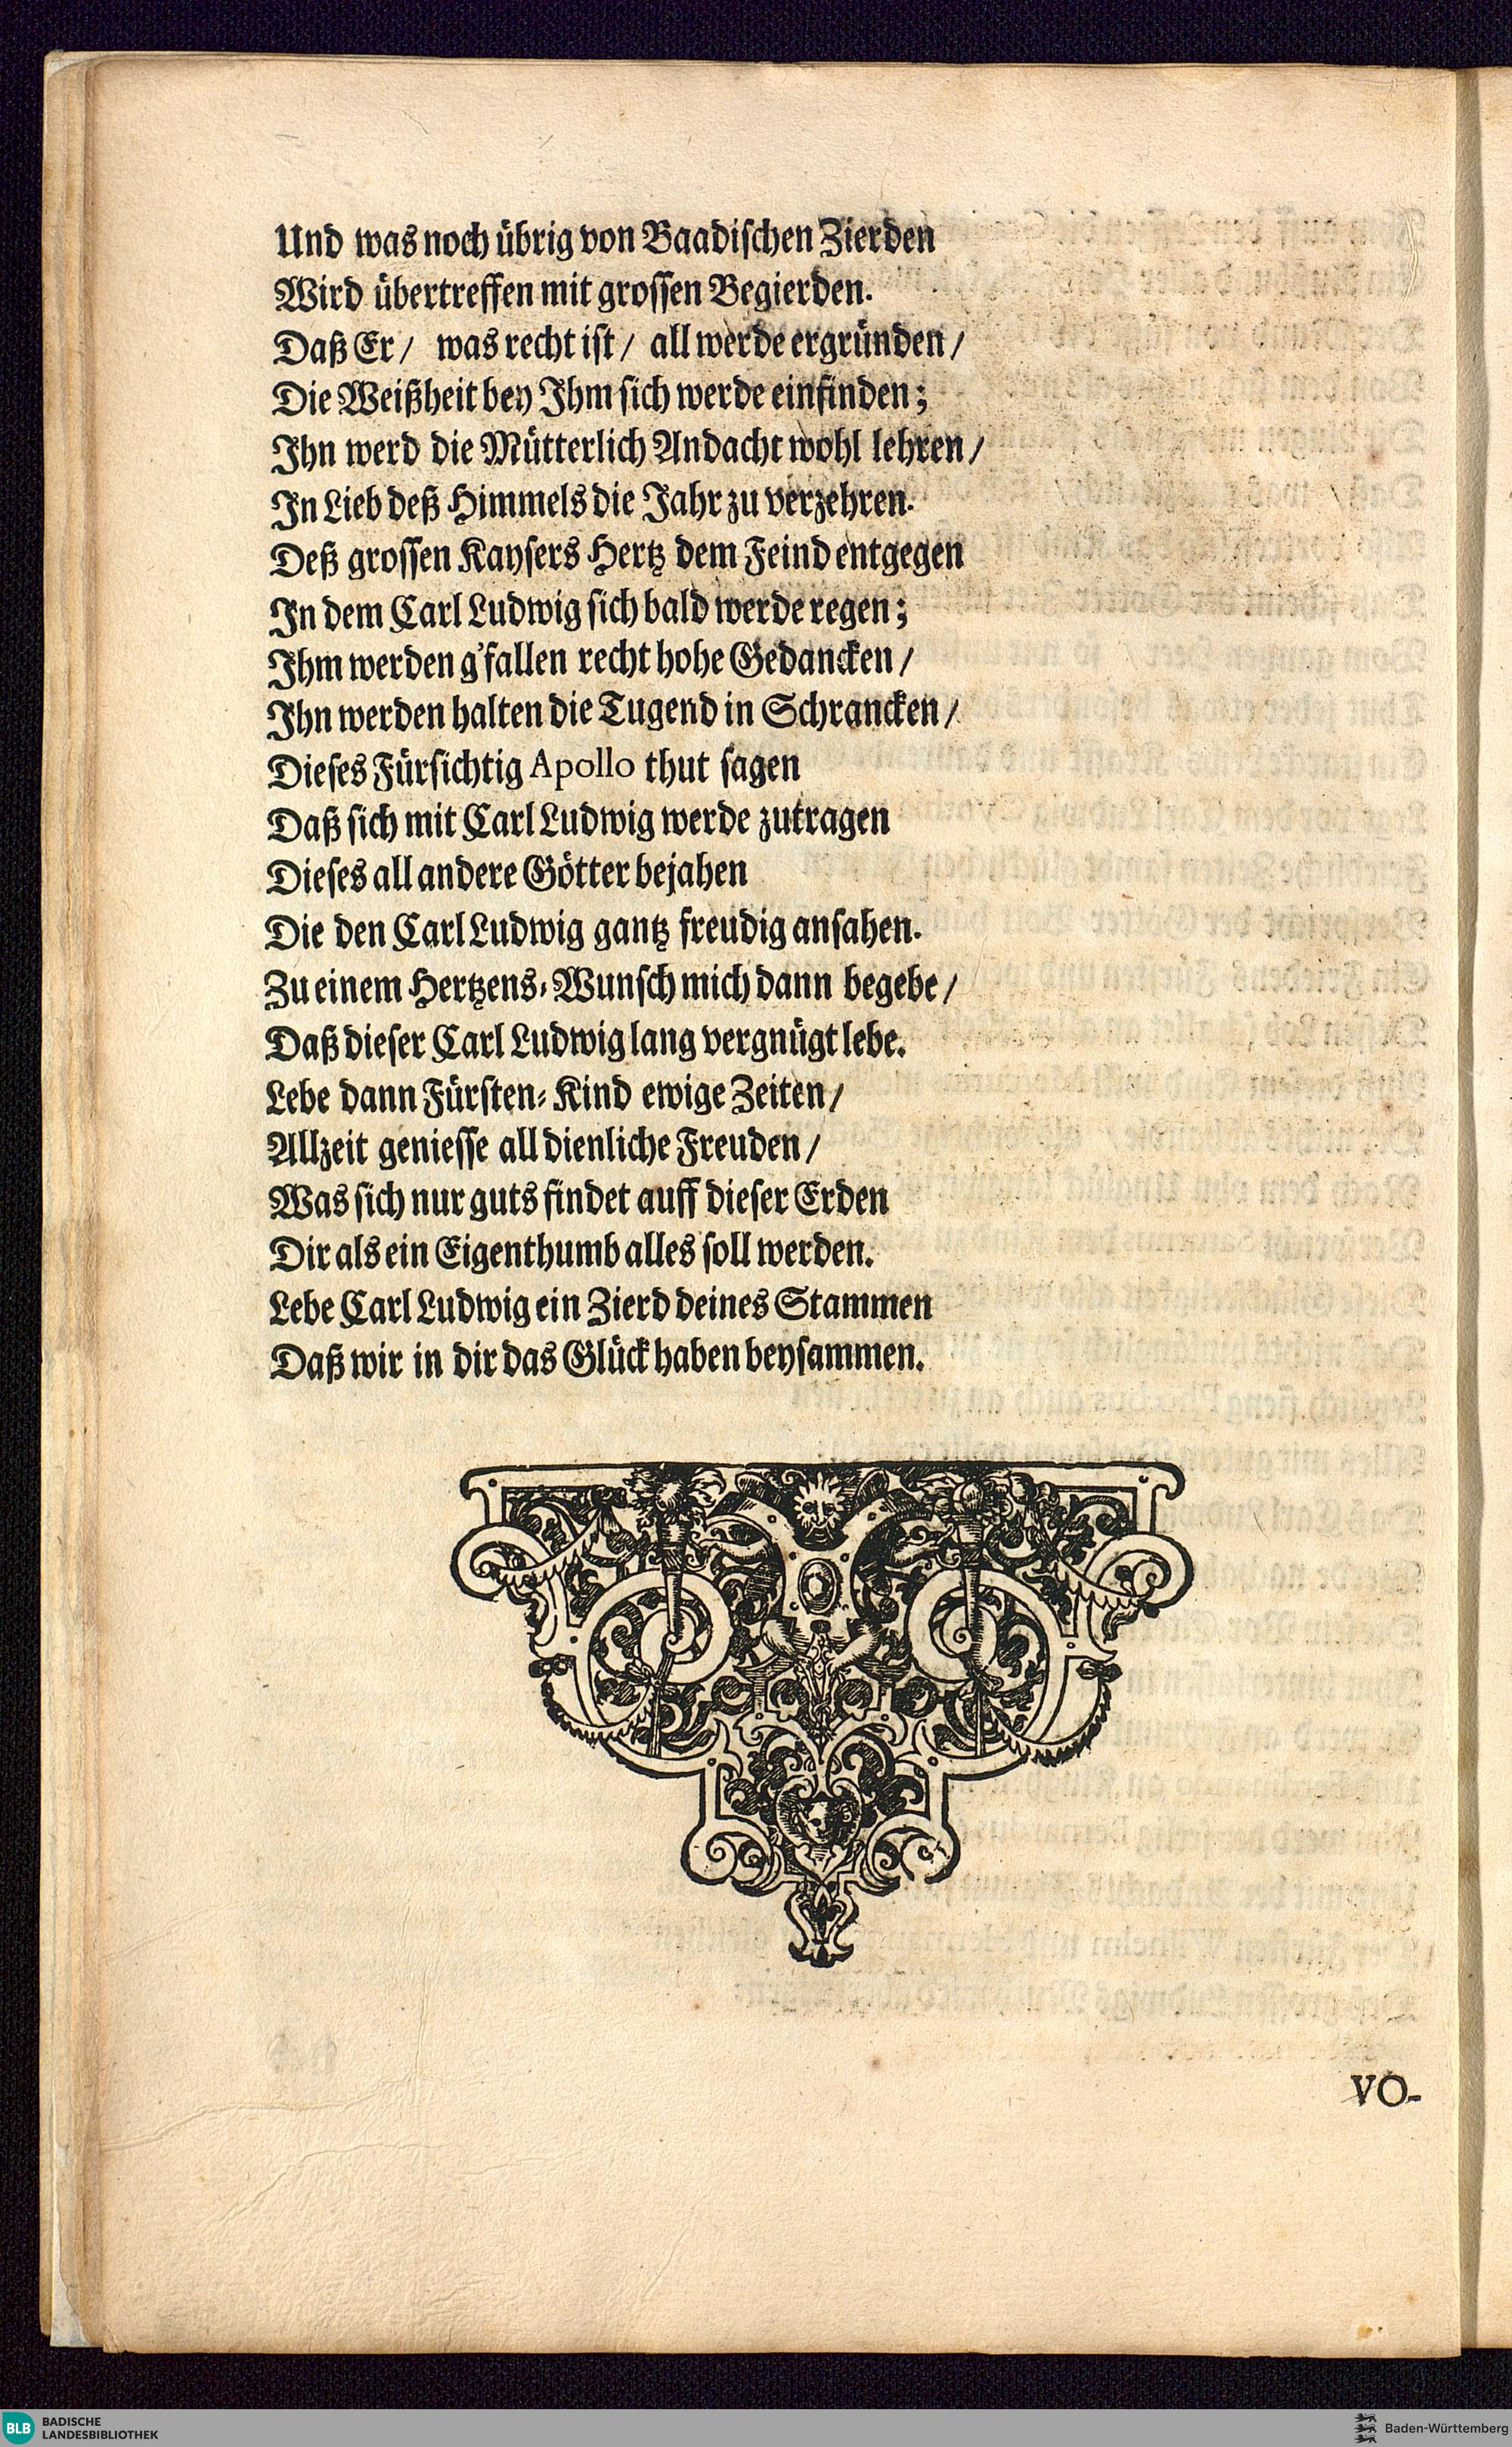 Und was noch übrig von Baadischen Zierden
Wird übertreffen mit grossen Begierden.
Daß Er / was recht ist / all werde ergründen /
Die Weißheit bey Ihm sich werde einfinden;
Ihn werd die Mütterlich Andacht wohl lehren /
In Lieb deß Himmels die Jahr zu verzehren.
Deß grossen Kaysers Hertz dem Feind entgegen
In dem Carl Ludwig sich bald werde regen;
Ihm werden g'fallen recht hohe Gedancken /
Ihn werden halten die Tugend in Schrancken /
Dieses Fürsichtig Apollo thut sagen
Daß sich mit Carl Ludwig werde zutragen
Dieses all andere Götter bejahen
Die den Carl Ludwig gantz freudig ansahen.
Zu einem Hertzens-Wunsch mich dann begebe /
Daß dieser Carl Ludwig lang vergnügt lebe.
Lebe dann Fürsten-Kind ewige Zeiten /
Allzeit geniesse all dienliche Freuden /
Was sich nur guts findet auff dieser Erden
Dir als ein Eigenthumb alles soll werden.
Lebe Carl Ludwig ein Zierd deines Stammen
Daß wir in dir das Glück haben beysammen.
VO-
BLB BADISCHE LANDESBIBLIOTHEK
Baden-Württemberg